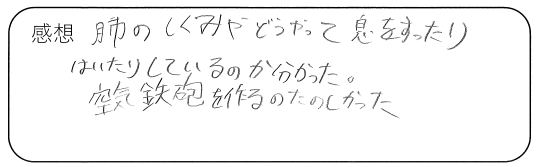 感想 肺のしくみやどうやって息をすったり
はいたりしているのか分かった。
空気鉄砲を作るのたのしかった